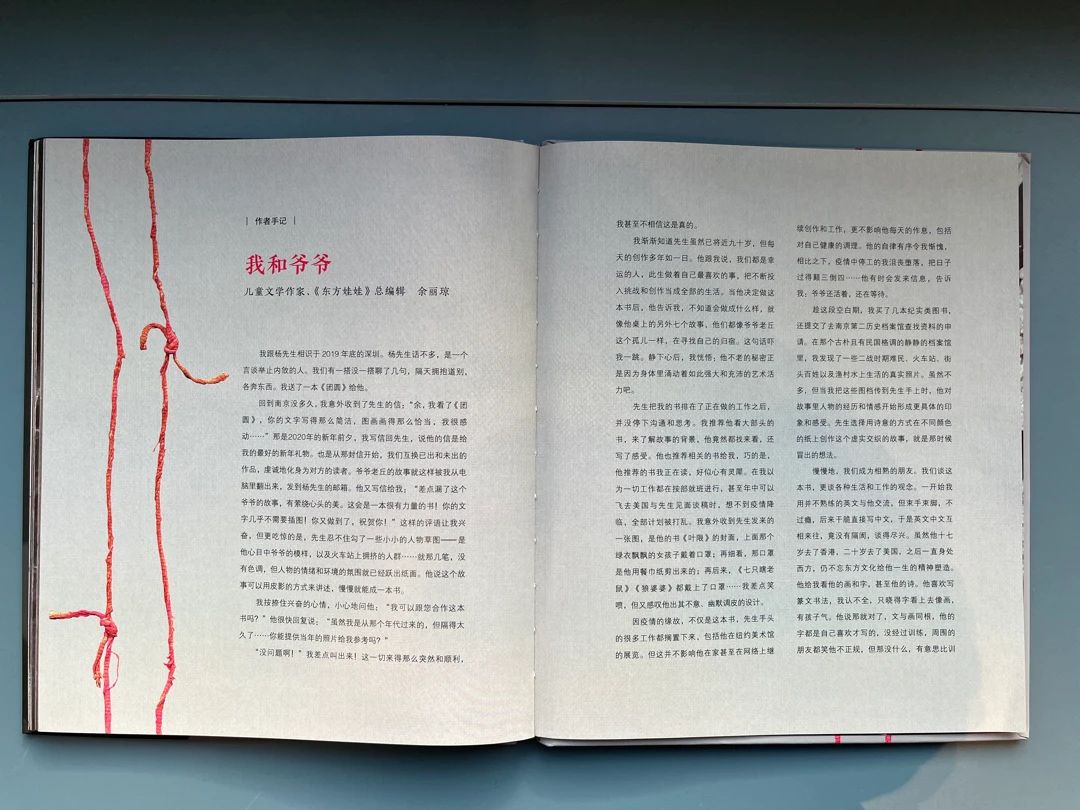 | 作者手记 |
我和爷爷
儿童文学作家、《东方娃娃》总编辑 余丽琼
我跟杨先生相识于 2019 年底的深圳。杨先生话不多，是一个
言谈举止内敛的人。我们有一搭没一搭聊了几句，隔天拥抱道别，
各奔东西。我送了一本《团圆》给他。
回到南京没多久，我意外收到了先生的信：“余，我看了《团
圆》，你的文字写得那么简洁，图画画得那么恰当，我很感
动……”那是2020年的新年前夕，我写信回先生，说他的信是给
我的最好的新年礼物。也是从那封信开始，我们互换已出和未出的
作品，虔诚地化身为对方的读者。爷爷老丘的故事就这样被我从电
脑里翻出来，发到杨先生的邮箱。他又写信给我：“差点漏了这个
爷爷的故事，有萦绕心头的美。这会是一本很有力量的书！你的文
字几乎不需要插图！你又做到了，祝贺你！”这样的评语让我兴
奋，但更吃惊的是，先生忍不住勾了一些小小的人物草图——是
他心目中爷爷的模样，以及火车站上拥挤的人群……就那几笔，没
有色调，但人物的情绪和环境的氛围就已经跃出纸面。他说这个故
事可以用皮影的方式来讲述，慢慢就能成一本书。
我按捺住兴奋的心情，小心地问他：“我可以跟您合作这本
书吗？”他很快回复说：“虽然我是从那个年代过来的，但隔得太
久了……你能提供当年的照片给我参考吗？”
“没问题啊！”我差点叫出来！这一切来得那么突然和顺利，
我甚至不相信这是真的。
我渐渐知道先生虽然已将近九十岁，但每
天的创作多年如一日。他跟我说，我们都是幸
运的人，此生做着自己最喜欢的事，把不断投
入挑战和创作当成全部的生活。当他决定做这
本书后，他告诉我，不知道会做成什么样，就
像他桌上的另外七个故事，他们都像爷爷老丘
这个孤儿一样，在寻找自己的归宿。这句话吓
我一跳。静下心后，我恍悟；他不老的秘密正
是因为身体里涌动着如此强大和充沛的艺术活
力吧。
先生把我的书排在了正在做的工作之后，
并没停下沟通和思考。我推荐他看大部头的
书，来了解故事的背景，他竟然都找来看，还
写了感受。他也推荐相关的书给我，巧的是，
他推荐的书我正在读，好似心有灵犀。在我以
为一切工作都在按部就班进行，甚至年中可以
飞去美国与先生见面谈稿时，想不到疫情降
临，全部计划被打乱。我意外收到先生发来的
一张图，是他的书《叶限》的封面，上面那个
绿衣飘飘的女孩子戴着口罩；再细看，那口罩
是他用餐巾纸剪出来的；再后来，《七只瞎老
鼠》《狼婆婆》都戴上了口罩……我差点笑
喷，但又感叹他出其不意、幽默调皮的设计。
因疫情的缘故，不仅是这本书，先生手头
的很多工作都搁置下来，包括他在纽约美术馆
的展览。但这并不影响他在家甚至在网络上继
续创作和工作，更不影响他每天的作息，包括
对自己健康的调理。他的自律有序令我惭愧，
相比之下，疫情中停工的我沮丧堕落，把日子
过得颠三倒四……他有时会发来信息，告诉
我：爷爷还活着，还在等待。
趁这段空白期，我买了几本纪实类图书，
还提交了去南京第二历史档案馆查找资料的申
请。在那个古朴且有民国格调的静静的档案馆
里，我发现了一些二战时期难民、火车站、街
头百姓以及渔村水上生活的真实照片。虽然不
多，但当我把这些图档传到先生手上时，他对
故事里人物的经历和情感开始形成更具体的印
象和感受。先生选择用诗意的方式在不同颜色
的纸上创作这个虚实交织的故事，就是那时候
冒出的想法。
慢慢地，我们成为相熟的朋友。我们谈这
本书，更谈各种生活和工作的观念。一开始我
用并不熟练的英文与他交流，但束手束脚，不
过瘾，后来干脆直接写中文，于是英文中文互
相来往，竟没有隔阂，谈得尽兴。虽然他十七
岁去了香港，二十岁去了美国，之后一直身处
西方，仍不忘东方文化给他一生的精神塑造。
他给我看他的画和字，甚至他的诗。他喜欢写
篆文书法，我认不全，只晓得字看上去像画，
有孩子气。他说那就对了，文与画同根，他的
字都是自己喜欢才写的，没经过训练，周围的
朋友都笑他不正规，但那没什么，有意思比训